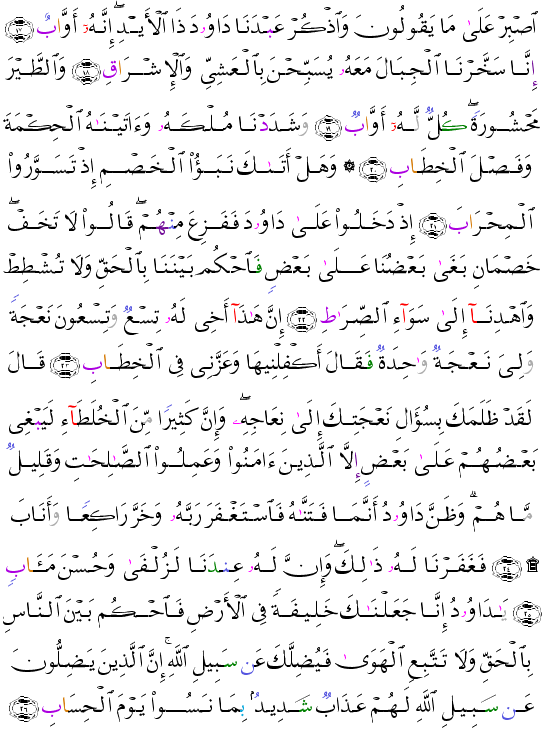 ٱصْبِرْ عَلَىٰ مَا يَقُولُونَ وَٱذْكُرْ عَبْدَنَا دَاوُۥدَ ذَا ٱلْأَيْدِ ۖ إِنَّهُۥٓ أَوَّابٌ ﴿١٧﴾
إِنَّا سَخَّرْنَا ٱلْجِبَالَ مَعَهُۥ يُسَبِّحْنَ بِٱلْعَشِىِّ وَٱلْإِشْرَاقِ ﴿١٨﴾ وَٱلطَّيْرَ
مَحْشُورَةً ۖ كُلٌّ لَّهُۥٓ أَوَّابٌ ﴿١٩﴾ وَشَدَدْنَا مُلْكَهُۥ وَءَاتَيْنَـٰهُ ٱلْحِكْمَةَ
وَفَصْلَ ٱلْخِطَابِ ﴿٢٠﴾ ۞ وَهَلْ أَتَىٰكَ نَبَؤُا۟ ٱلْخَصْمِ إِذْ تَسَوَّرُوا۟
ٱلْمِحْرَابَ ﴿٢١﴾ إِذْ دَخَلُوا۟ عَلَىٰ دَاوُۥدَ فَفَزِعَ مِنْهُمْ ۖ قَالُوا۟ لَا تَخَفْ ۖ
خَصْمَانِ بَغَىٰ بَعْضُنَا عَلَىٰ بَعْضٍ فَٱحْكُم بَيْنَنَا بِٱلْحَقِّ وَلَا تُشْطِطْ
وَٱهْدِنَآ إِلَىٰ سَوَآءِ ٱلصِّرَٰطِ ﴿٢٢﴾ إِنَّ هَـٰذَآ أَخِى لَهُۥ تِسْعٌ وَتِسْعُونَ نَعْجَةً
وَلِىَ نَعْجَةٌ وَٰحِدَةٌ فَقَالَ أَكْفِلْنِيهَا وَعَزَّنِى فِى ٱلْخِطَابِ ﴿٢٣﴾ قَالَ
لَقَدْ ظَلَمَكَ بِسُؤَالِ نَعْجَتِكَ إِلَىٰ نِعَاجِهِۦ ۖ وَإِنَّ كَثِيرًا مِّنَ ٱلْخُلَطَآءِ لَيَبْغِى
بَعْضُهُمْ عَلَىٰ بَعْضٍ إِلَّا ٱلَّذِينَ ءَامَنُوا۟ وَعَمِلُوا۟ ٱلصَّـٰلِحَـٰتِ وَقَلِيلٌ
مَّا هُمْ ۗ وَظَنَّ دَاوُۥدُ أَنَّمَا فَتَنَّـٰهُ فَٱسْتَغْفَرَ رَبَّهُۥ وَخَرَّ رَاكِعًا وَأَنَابَ
۩ ﴿٢٤﴾ فَغَفَرْنَا لَهُۥ ذَٰلِكَ ۖ وَإِنَّ لَهُۥ عِندَنَا لَزُلْفَىٰ وَحُسْنَ مَـَٔابٍ
﴿٢٥﴾ يَـٰدَاوُۥدُ إِنَّا جَعَلْنَـٰكَ خَلِيفَةً فِى ٱلْأَرْضِ فَٱحْكُم بَيْنَ ٱلنَّاسِ
بِٱلْحَقِّ وَلَا تَتَّبِعِ ٱلْهَوَىٰ فَيُضِلَّكَ عَن سَبِيلِ ٱللَّهِ ۚ إِنَّ ٱلَّذِينَ يَضِلُّونَ
عَن سَبِيلِ ٱللَّهِ لَهُمْ عَذَابٌ شَدِيدٌۢ بِمَا نَسُوا۟ يَوْمَ ٱلْحِسَابِ ﴿٢٦﴾